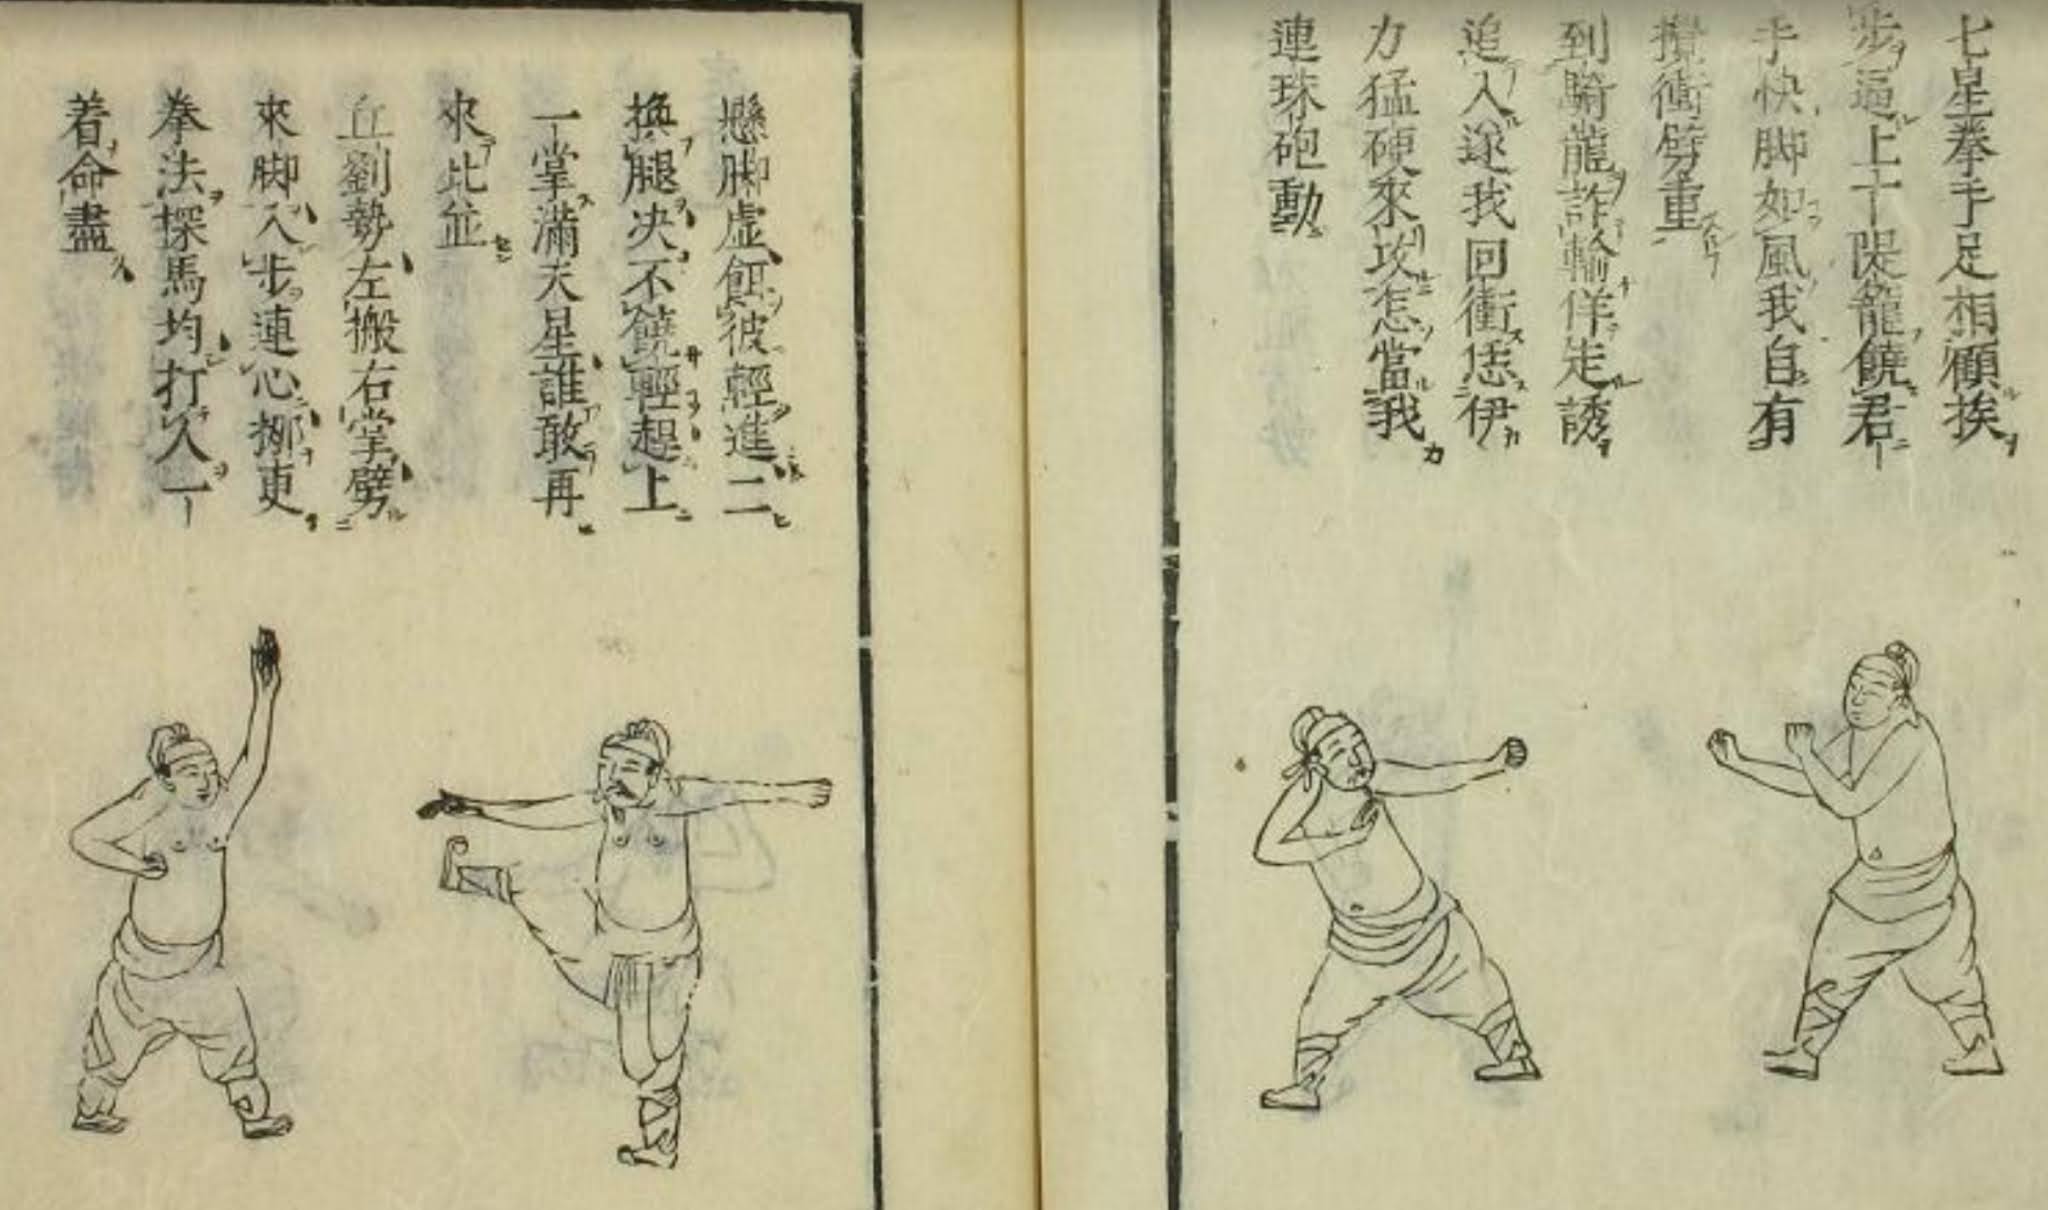 七星拳手足相顧挨
步逼上下隄籠饒君
手快脚如風我自有
攪衝劈重
到騎龍詐輸佯走誘
追入遂我回衝恁伊
力猛硬來攻怎當我
連珠砲動
懸脚虛餌彼輕進二
換腿决不饒輕趕上
一掌滿天星誰敢再
來比並
丘劉勢左搬右掌劈
來脚入步連心挪更
拳法探馬均打人一
着命盡